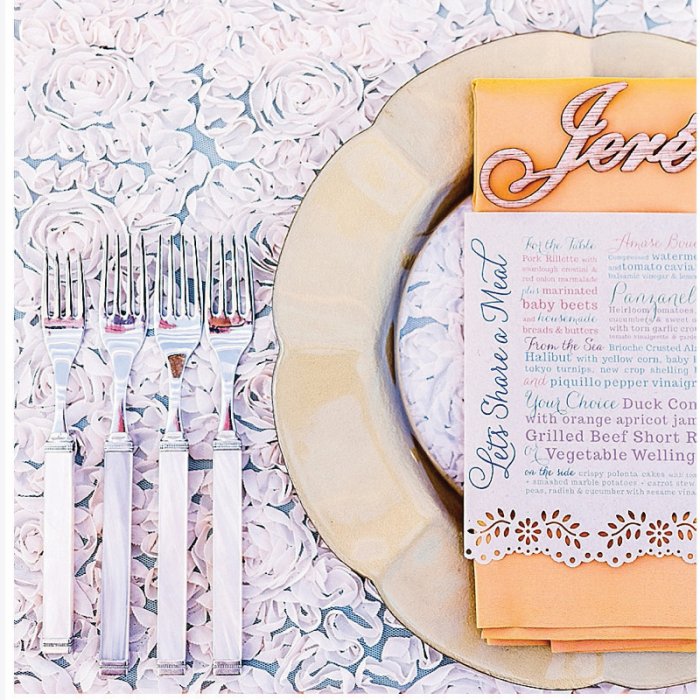 Jere
Let's Share a Meal
For the Table
Pork Rillette with
sourdough crostini &
red onion marmalade
plus marinated
baby beets
and housemade
breads & butters
From the Sea
Halibut with yellow corn, baby
tokyo turnips, new crop shelling
and piquillo pepper vinaigr
Your Choice Duck Con
with orange apricot jam
Grilled Beef Short R
or Vegetable Welling
on the side crispy polenta cakes with
+ smashed marble potatoes + carrot stew
peas, radish & cucumber with sesame vina
Amuse Bou
Compressed waterme
and tomato caviar
balsamic vinegar &
Panzanel
Heirloom tomatoes
cucumbers & sweet o
with torn garlic cro
tomato vinaigrette & garde
Brioche Crusted Ala